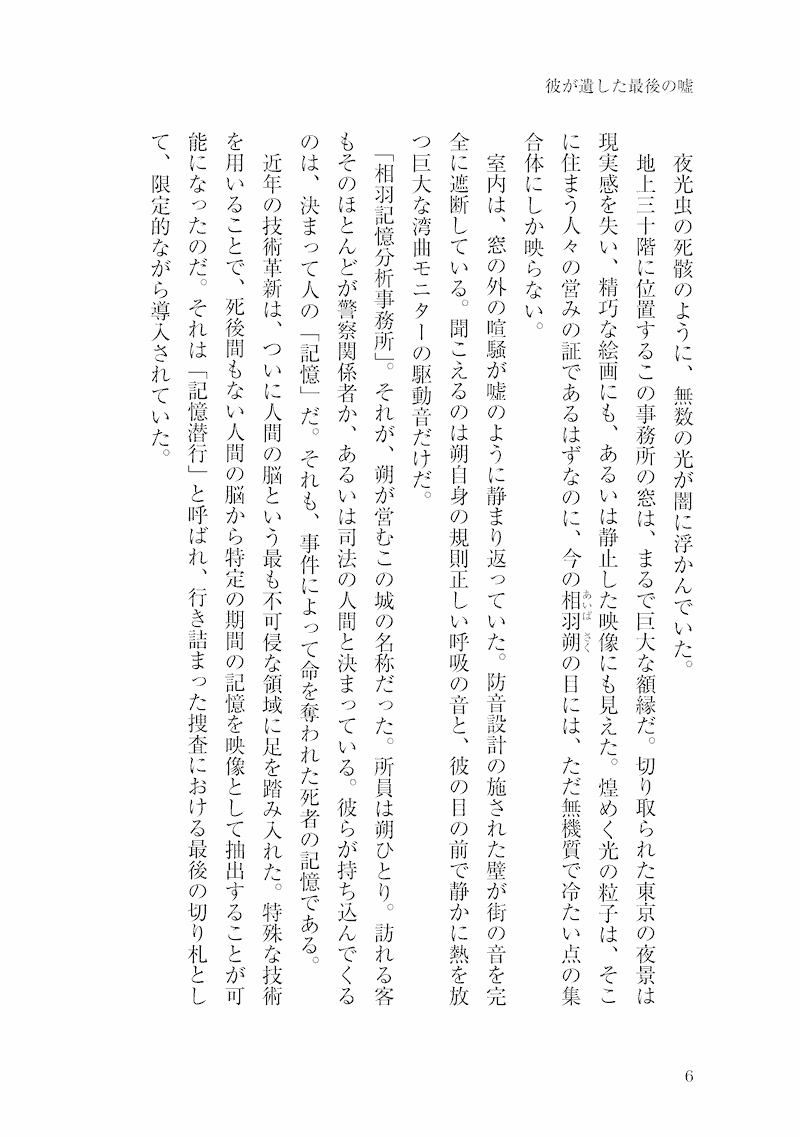 彼が遺した最後の嘘
　夜光虫の死骸のように、無数の光が闇に浮かんでいた。
　地上三十階に位置するこの事務所の窓は、まるで巨大な額縁だ。切り取られた東京の夜景は
現実感を失い、精巧な絵画にも、あるいは静止した映像にも見えた。煌めく光の粒子は、そこ
に住まう人々の営みの証であるはずなのに、今の相羽朔の目には、ただ無機質で冷たい点の集
あいば　さく
合体にしか映らない。
　室内は、窓の外の喧騒が嘘のように静まり返っていた。防音設計の施された壁が街の音を完
全に遮断している。聞こえるのは朔自身の規則正しい呼吸の音と、彼の目の前で静かに熱を放
つ巨大な湾曲モニターの駆動音だけだ。
　「相羽記憶分析事務所」。それが、朔が営むこの城の名称だった。所員は朔ひとり。訪れる客
もそのほとんどが警察関係者か、あるいは司法の人間と決まっている。彼らが持ち込んでくる
のは、決まって人の「記憶」だ。それも、事件によって命を奪われた死者の記憶である。
　近年の技術革新は、ついに人間の脳という最も不可侵な領域に足を踏み入れた。特殊な技術
を用いることで、死後間もない人間の脳から特定の期間の記憶を映像として抽出することが可
能になったのだ。それは「記憶潜行」と呼ばれ、行き詰まった捜査における最後の切り札とし
て、限定的ながら導入されていた。
6